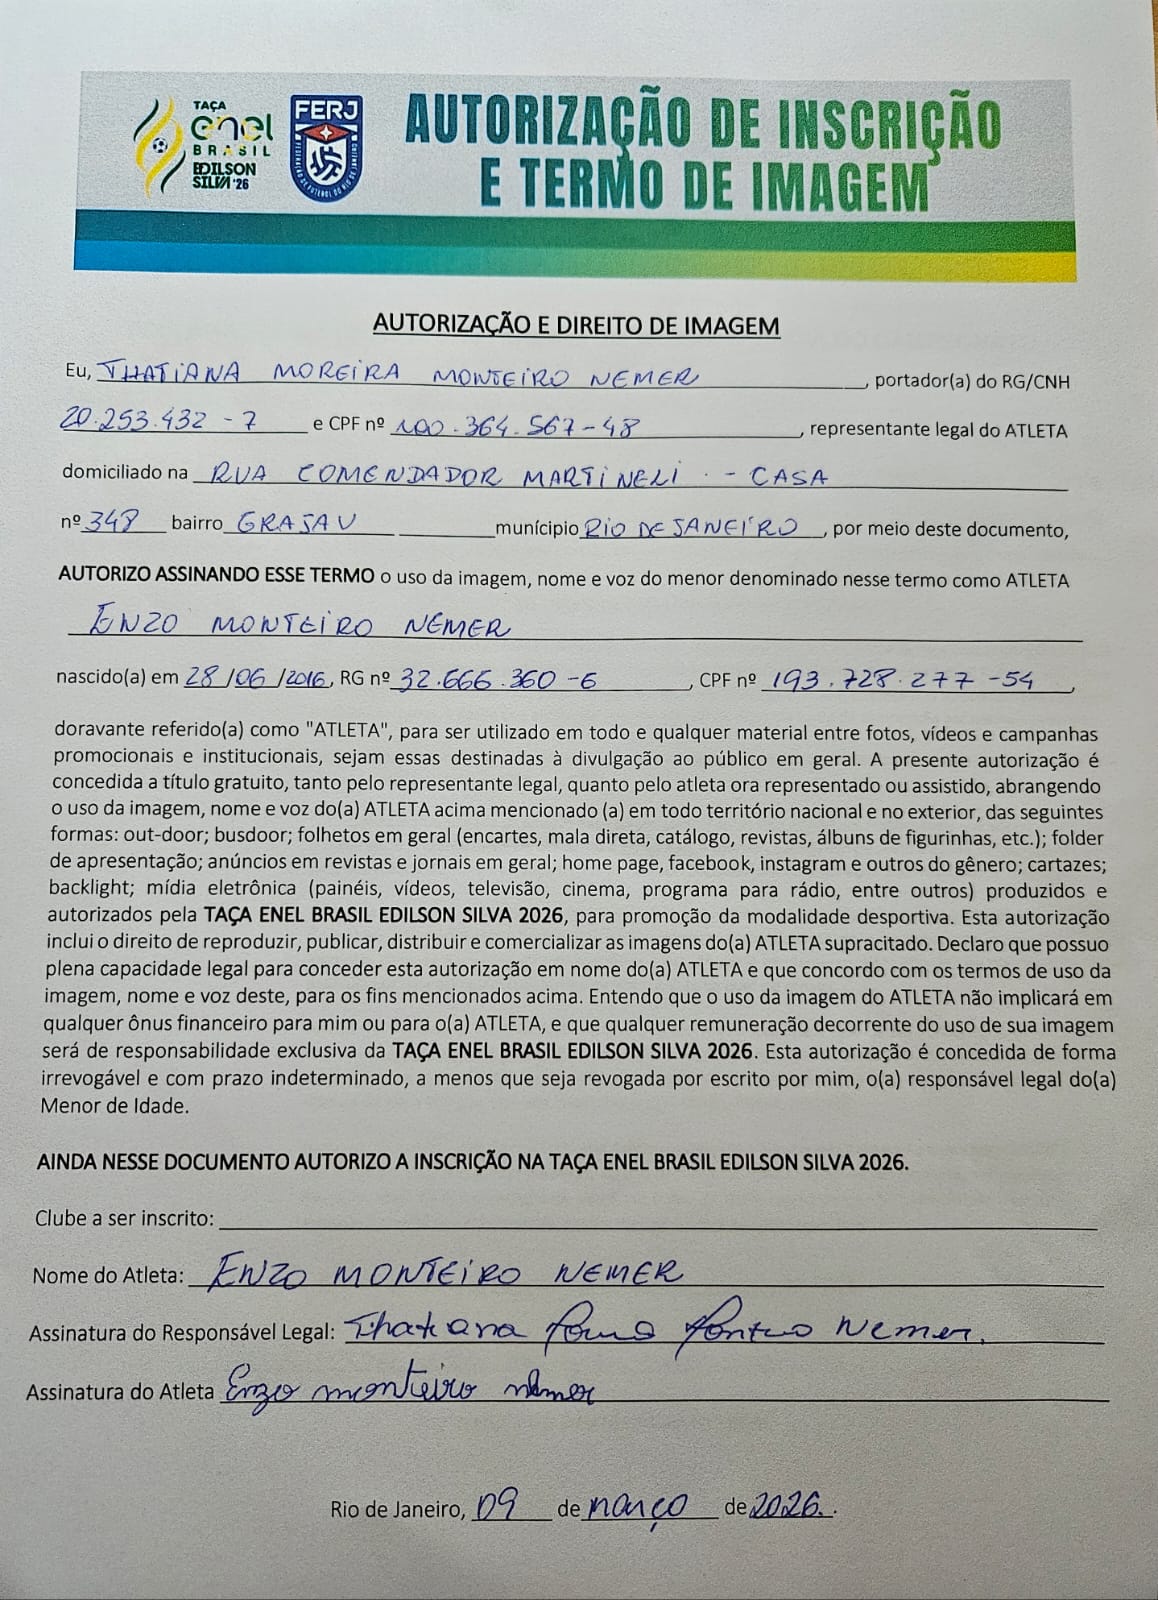 TAÇA
enel
BRASIL
EDILSON
SILVA '26
FERJ
AUTORIZAÇÃO DE INSCRIÇÃO
E TERMO DE IMAGEM
AUTORIZAÇÃO E DIREITO DE IMAGEM
Eu, THATIANA MOREIRA MONTEIRO NEMER, portador(a) do RG/CNH
20.253.432-7 e CPF nº 100.364.567-48, representante legal do ATLETA
domiciliado na RUA COMENDADOR MARTINELI - CASA
nº 348 bairro GRAJAU município RIO DE JANEIRO, por meio deste documento,
AUTORIZO ASSINANDO ESSE TERMO o uso da imagem, nome e voz do menor denominado nesse termo como ATLETA
ENZO MONTEIRO NEMER
nascido(a) em 28/06/2016, RG nº 32.666.360-6, CPF nº 193.728.277-54,
doravante referido(a) como "ATLETA", para ser utilizado em todo e qualquer material entre fotos, vídeos e campanhas
promocionais e institucionais, sejam essas destinadas à divulgação ao público em geral. A presente autorização é
concedida a título gratuito, tanto pelo representante legal, quanto pelo atleta ora representado ou assistido, abrangendo
o uso da imagem, nome e voz do(a) ATLETA acima mencionado (a) em todo território nacional e no exterior, das seguintes
formas: out-door; busdoor; folhetos em geral (encartes, mala direta, catálogo, revistas, álbuns de figurinhas, etc.); folder
de apresentação; anúncios em revistas e jornais em geral; home page, facebook, instagram e outros do gênero; cartazes;
backlight; mídia eletrônica (painéis, vídeos, televisão, cinema, programa para rádio, entre outros) produzidos e
autorizados pela TAÇA ENEL BRASIL EDILSON SILVA 2026, para promoção da modalidade desportiva. Esta autorização
inclui o direito de reproduzir, publicar, distribuir e comercializar as imagens do(a) ATLETA supracitado. Declaro que possuo
plena capacidade legal para conceder esta autorização em nome do(a) ATLETA e que concordo com os termos de uso da
imagem, nome e voz deste, para os fins mencionados acima. Entendo que o uso da imagem do ATLETA não implicará em
qualquer ônus financeiro para mim ou para o(a) ATLETA, e que qualquer remuneração decorrente do uso de sua imagem
será de responsabilidade exclusiva da TAÇA ENEL BRASIL EDILSON SILVA 2026. Esta autorização é concedida de forma
irrevogável e com prazo indeterminado, a menos que seja revogada por escrito por mim, o(a) responsável legal do(a)
Menor de Idade.
AINDA NESSE DOCUMENTO AUTORIZO A INSCRIÇÃO NA TAÇA ENEL BRASIL EDILSON SILVA 2026.
Clube a ser inscrito:
Nome do Atleta: ENZO MONTEIRO NEMER
Assinatura do Responsável Legal: Thatiana Nemer.
Assinatura do Atleta Enzo monteiro nemer
Rio de Janeiro, 09 de março de 2026.